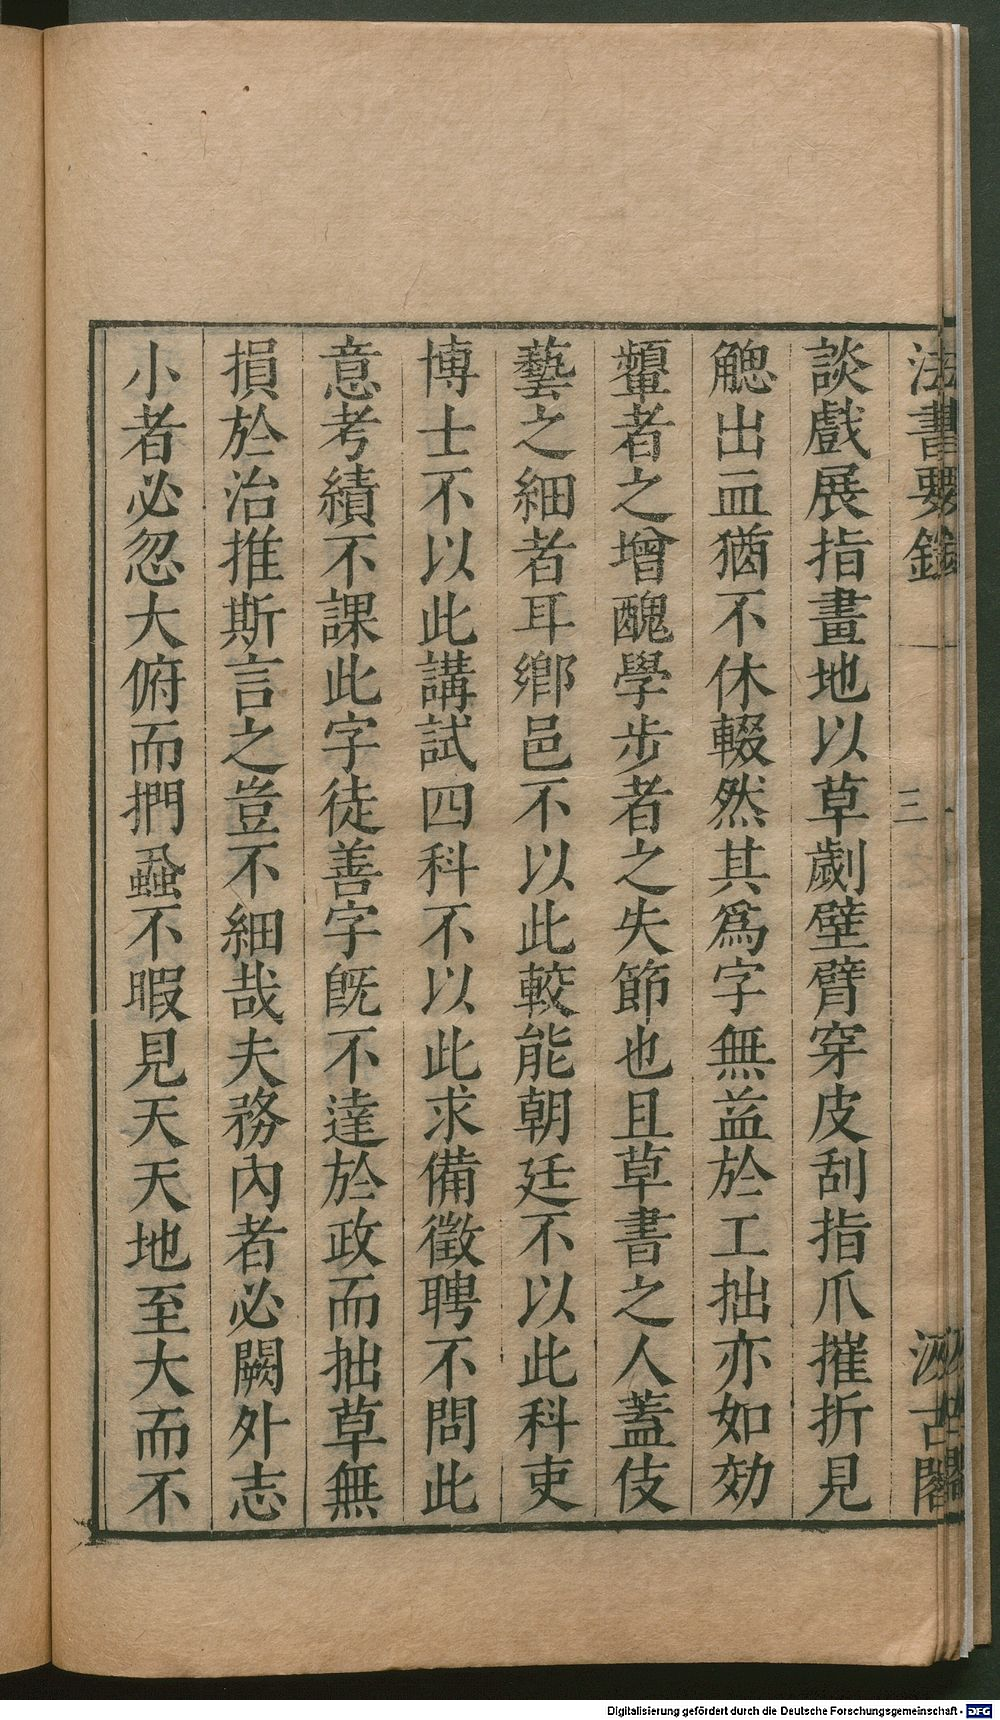 法書要錄
三
汲古閣
談戲展指畫地以草劌壁臂穿皮刮指爪摧折見
䚡出血猶不休輟然其爲字無益於工拙亦如効
顰者之增醜學步者之失節也且草書之人蓋伎
藝之細者耳鄉邑不以此較能朝廷不以此科吏
博士不以此講試四科不以此求備徵聘不問此
意考績不課此字徒善字旣不達於政而拙草無
損於治推斯言之豈不細哉夫務內者必闕外志
小者必忽大俯而捫蝨不暇見天天地至大而不
Digitalisierung gefördert durch die Deutsche Forschungsgemeinschaft - DFG